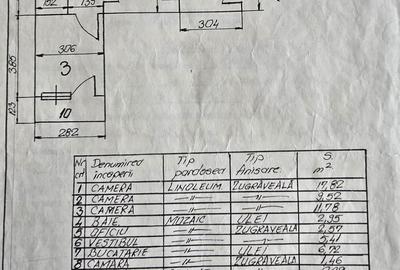 152 135
304
306
3
3.85
1.23
10
282
Nr crt Denumirea încăperii Tip pardosea Tip finisare S. m²
1 CAMERA LINOLEUM ZUGRĂVEALĂ 17,82
2 CAMERA —"— —"— 9,52
3 CAMERA —"— —"— 11,78
4 BAIE MOZAIC ULEI 2,95
5 OFICIU —"— ZUGRĂVEALA 2,57
6 VESTIBUL —"— —"— 5,41
7 BUCATARIE —"— ULEI
8 CĂMARA —"— ZUGRĂVEALA 1,46